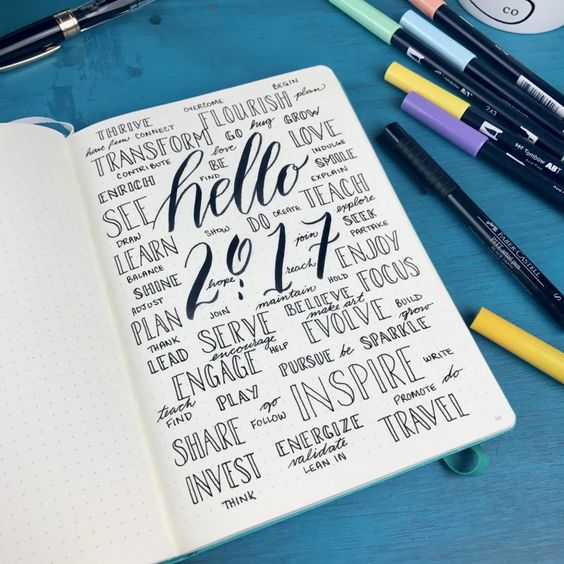 BEGIN
OVERCOME
THRIVE FLOURISH plan
have fun CONNECT GO hug GROW
TRANSFORM love LOVE
CONTRIBUTE BE INDULGE
ENRICH FIND SMILE
hello EXPLAIN
SEE TEACH
DRAW SHOW DO CREATE explore
LEARN join SEEK
BALANCE 2017 PARTAKE
SHINE hope reach ENJOY
ADJUST maintain HOLD FOCUS
PLAN JOIN BELIEVE BUILD
THANK SERVE make art grow
LEAD encourage EVOLVE
ENGAGE HELP PURSUE be SPARKLE
teach PLAY INSPIRE WRITE
FIND go PROMOTE do
SHARE FOLLOW TRAVEL
ENERGIZE
INVEST validate
THINK LEAN IN
CO
243
Tombow ABT
FABER-CASTELL
PITT artist pen
S